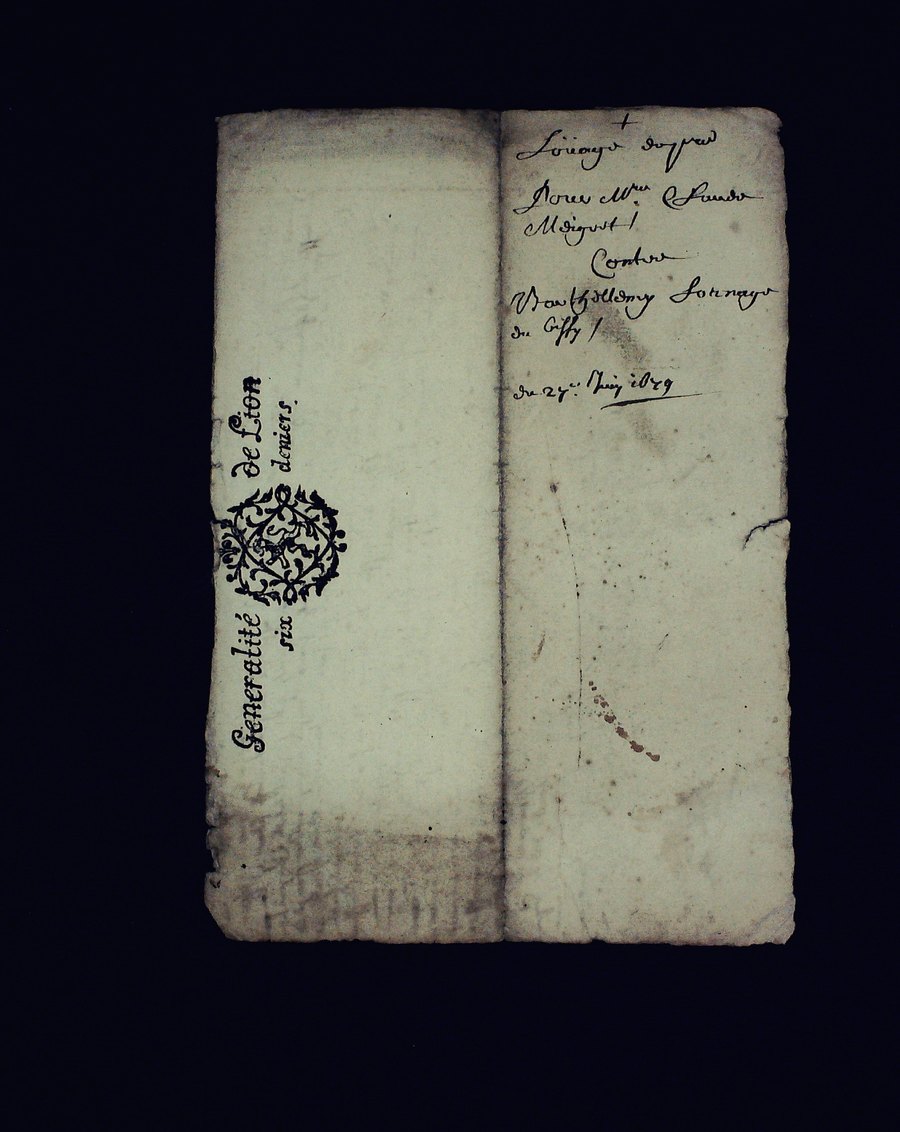 Generalité de Lion
six deniers.
Loüage de pre
Pour Mre Claude
Meignet /
Contre
Barthellemy Fornage
de Giffy /
du 27e Juin 1679